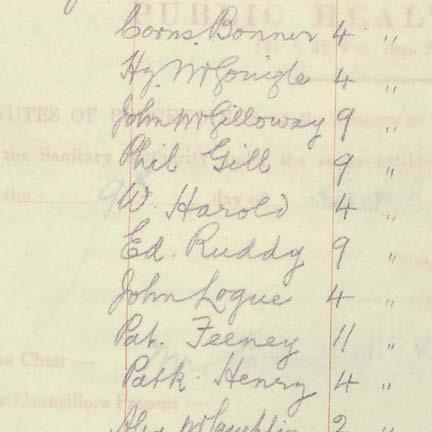 Corns. Bonner 4 "
Hy. McGonigle 4 "
John McGilloway 9 "
Phil Gill 9 "
W. Harold 4 "
Ed. Ruddy 9 "
John Logue 4 "
Pat. Feeney 11 "
Patk. Henry 4 "
Alex McLaughlin 2 "
PUBLIC HEAL
NUTES OF
the Sanitary
the day of
Chair —
Councillors Present —